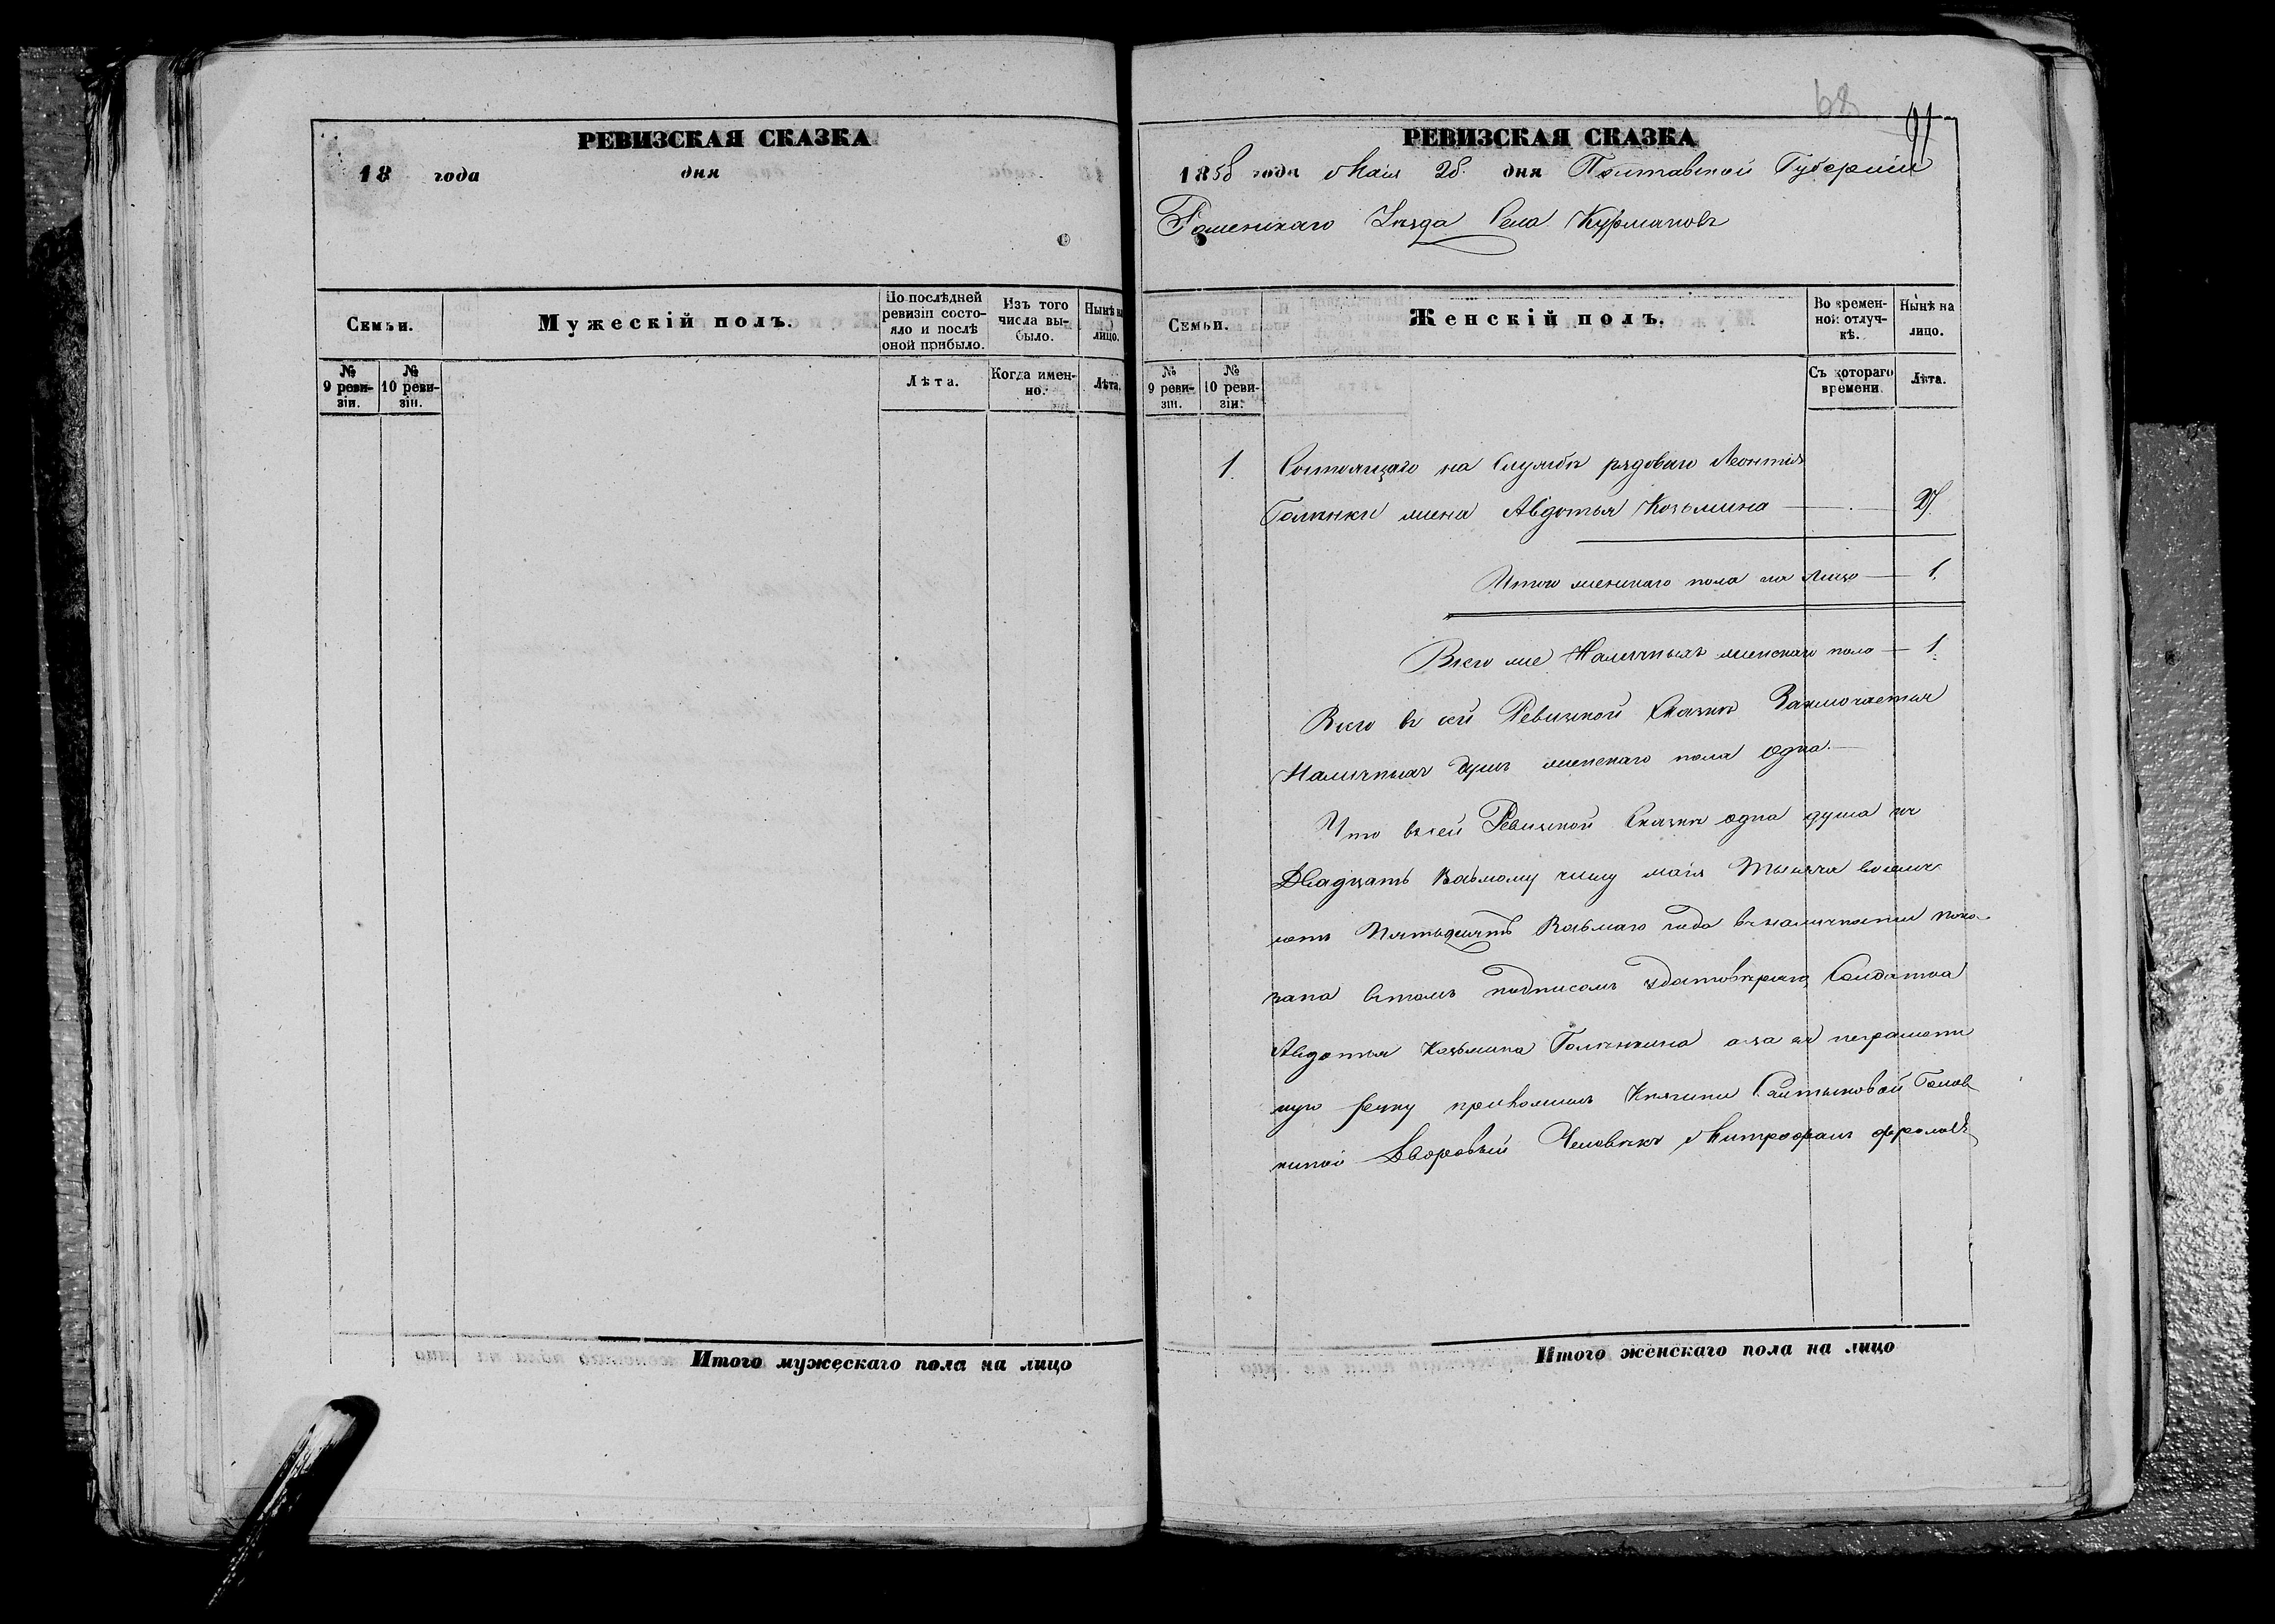 РЕВИЗСКАЯ СКАЗКА
18 года дня
Семьи.
Мужескій полъ.
По послѣдней ревизіи состояло и послѣ оной прибыло.
Изъ того числа выбыло.
Нынѣ на лицо.
№ 9 ревизіи.
№ 10 ревизіи.
Лѣта.
Когда именно.
Лѣта.
Итого мужескаго пола на лицо
68
91
РЕВИЗСКАЯ СКАЗКА
1858 года Маія 28. дня Полтавской Губерніи
Роменскаго Уѣзда Села Курмановъ
Семьи.
Женскій полъ.
Во временной отлучкѣ.
Нынѣ на лицо.
№ 9 ревизіи.
№ 10 ревизіи.
Съ котораго времени.
Лѣта.
1. Состоящаго на Службѣ рядоваго Леонтія
Голенки жена Авдотья Козьмина — 27.
Итого женскаго пола на Лицо — 1.
Всего же Наличныхъ женскаго пола — 1.
Всего въ сей Ревизской Сказкѣ Заключается
Наличныхъ душъ женскаго пола Одна.—
Что въ сей Ревизской Сказкѣ одна душа къ
Двадцать Восьмому числу маія Тысяча восемь
сотъ Пятьдесятъ Восьмаго года въ наличности пока
зана въ томъ подписомъ Солдатка
Авдотья Козьмина а за ея неграмотн
ую руку приложилъ Княгини Салтыковой Голов
киной Дворовый Человѣкъ Митрофанъ Фроловъ
Итого женскаго пола на лицо